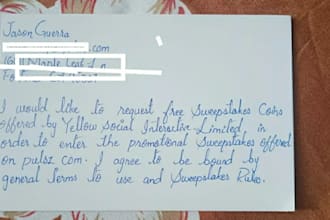 Jason Guerra
.com
Maple Leaf Ln
I would like to request free Sweepstakes Coins
offered by Yellow Social Interactive Limited in
order to enter the promotional Sweepstakes offered
on pulsz com. I agree to be bound by
general terms to use and Sweepstakes Rules.